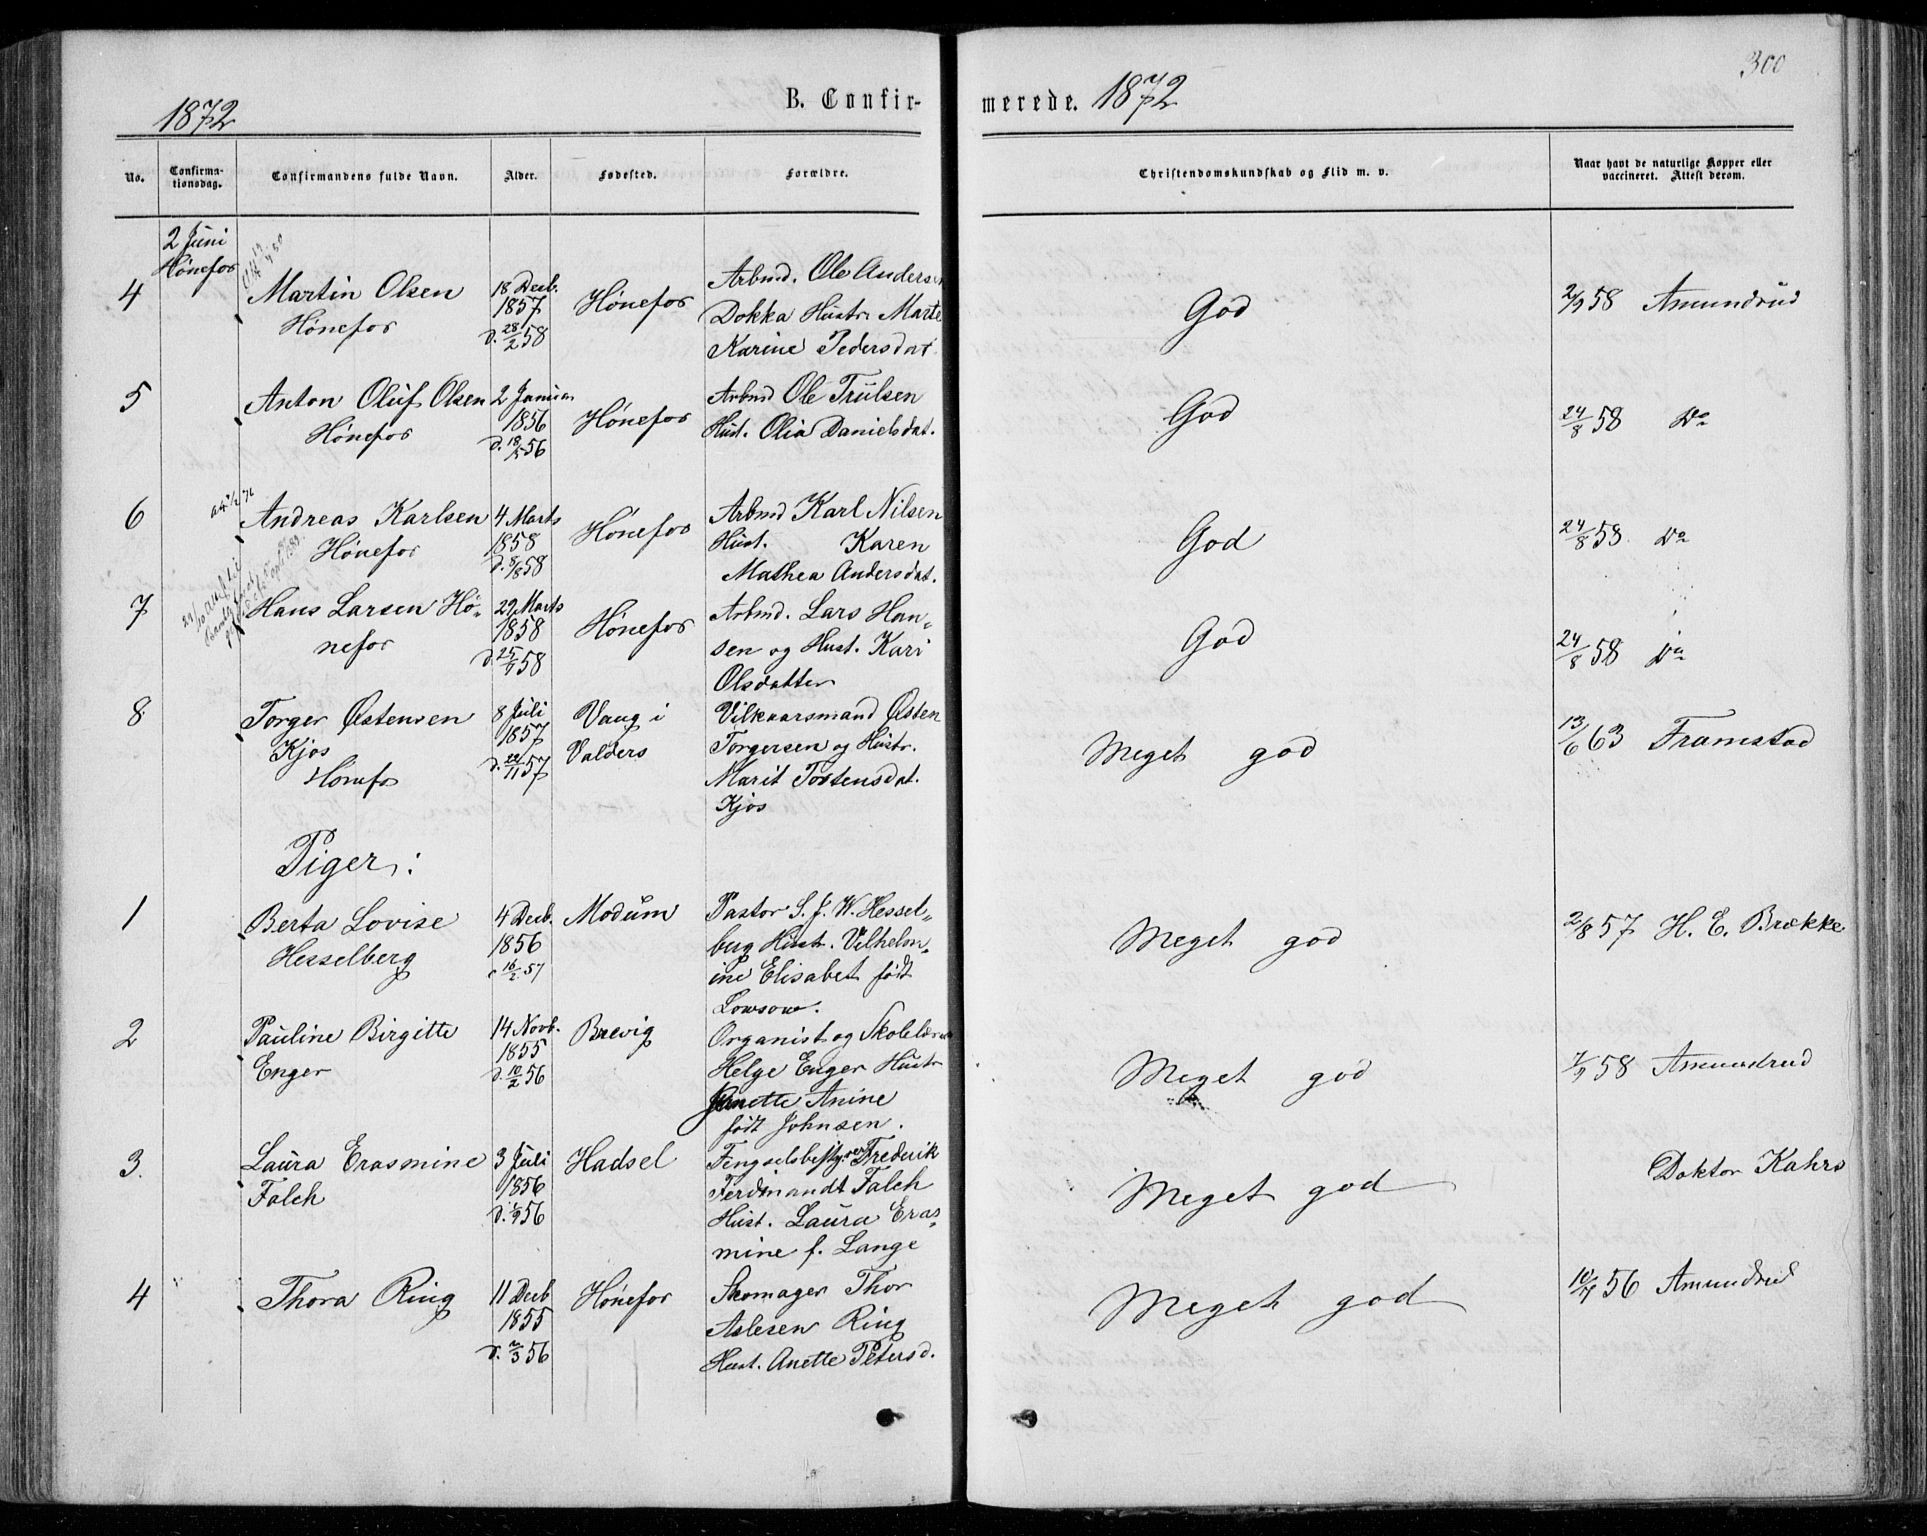 300
1872 B. Confirmerede. 1872
No. Confirmationsdag. Confirmandens fulde Navn. Alder. Fødested. Forældre. Christendomskundskab og Flid m. v. Naar havt de naturlige Kopper eller vaccineret. Attest derom.
2 Juni
Hønefos
4 Martin Olsen 18 Decb. Hønefos Arbmd. Ole Anders God 2/9 58 Amundrud
Hønefos 1857 Dokka Hustr. Marte
d. 28/2 58 Karine Pedersdat.
5 Anton Oluf Olsen 2 Januar Hønefos Arbmd Ole Trulsen God 24/8 58 Do
Hønefos 1856 Hust. Olia Danielsdat.
d. 18/5 56
6 Andreas Karlsen 4 Marts Hønefos Arbmd Karl Nilsen God 24/8 58. Do
Hønefos 1858 Hust. Karen
d. 8/8 58 Mathea Andersdat.
7 Hans Larsen Hø- 29 Marts Hønefos Arbmd. Lars Han- God 24/8 58 Do
nefos 1858 sen og Hust. Kari
d. 25/7 58 Olsdatter
8 Torger Østensen 8 Juli Vang i Vilkaarsmand Østen Meget god 13/6 63 Framstad
Kjos 1857 Valders Torgersen og Hustr.
Hønefos d. 22/11 57 Marit Tostensdat.
Kjos
Piger:
1 Berta Lovise 4 Decb. Modum Pastor S. J. W. Hessel- Meget god 2/8 57 H. E. Brække
Hesselberg 1856 berg Hust. Vilhelm-
16/2 57 ine Elisabet født
Lowsow.
2 Pauline Birgitte 14 Novb. Brevig Organist og Skolelærer Meget god 7/9 58 Amundrud
Enger 1855 Helge Enger Hustr
d. 10/2 56 Janette Anine
født Johnsen.
3. Laura Erasmine 3 Juli Hadsel Fengselsbestyrer Frederik Meget god Doktor Kahrs
Falch 1856 Ferdinandt Falch
d. 1/9 56 Hust. Laura Eras-
mine f. Lange
4 Thora Ring 11 Decb Hønefos Skomager Thor Meget god 10/7 56 Amundrud
1855 Aslesen Ring
d. 2/3 56 Hust. Anette Petersd.